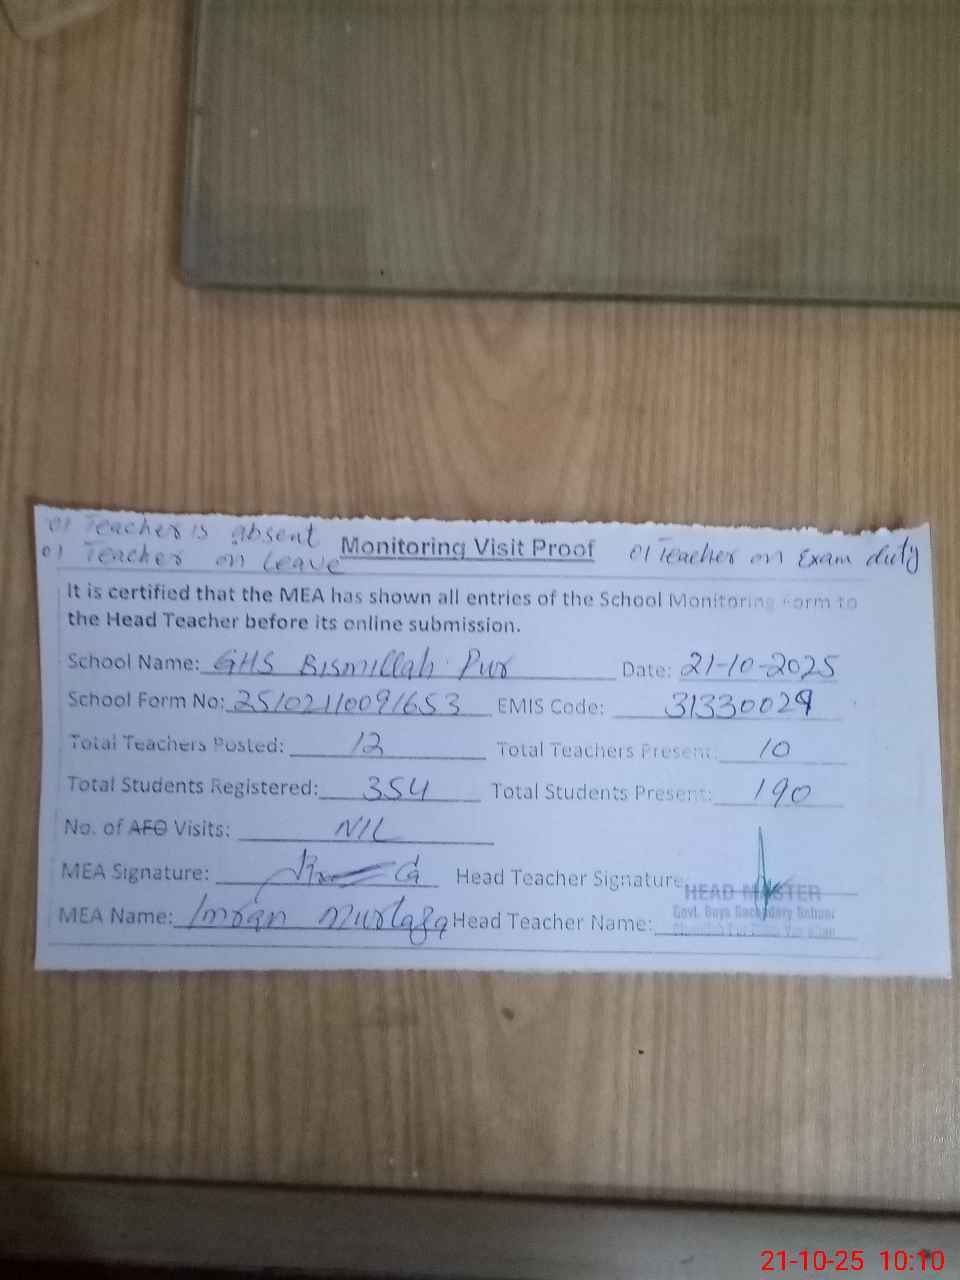 01 Teacher is absent
01 Teacher on leave
Monitoring Visit Proof
01 Teacher on Exam duty
It is certified that the MEA has shown all entries of the School Monitoring Form to
the Head Teacher before its online submission.
School Name: GHS Bismillah Pur Date: 21-10-2025
School Form No: 2510211009 1653 EMIS Code: 31330029
Total Teachers Posted: 12 Total Teachers Present: 10
Total Students Registered: 354 Total Students Present: 190
No. of AEO Visits: NIL
MEA Signature: Head Teacher Signature:
HEAD MASTER
MEA Name: Imran Murtaza Head Teacher Name:
Govt. Boys Secondary School
21-10-25 10:10